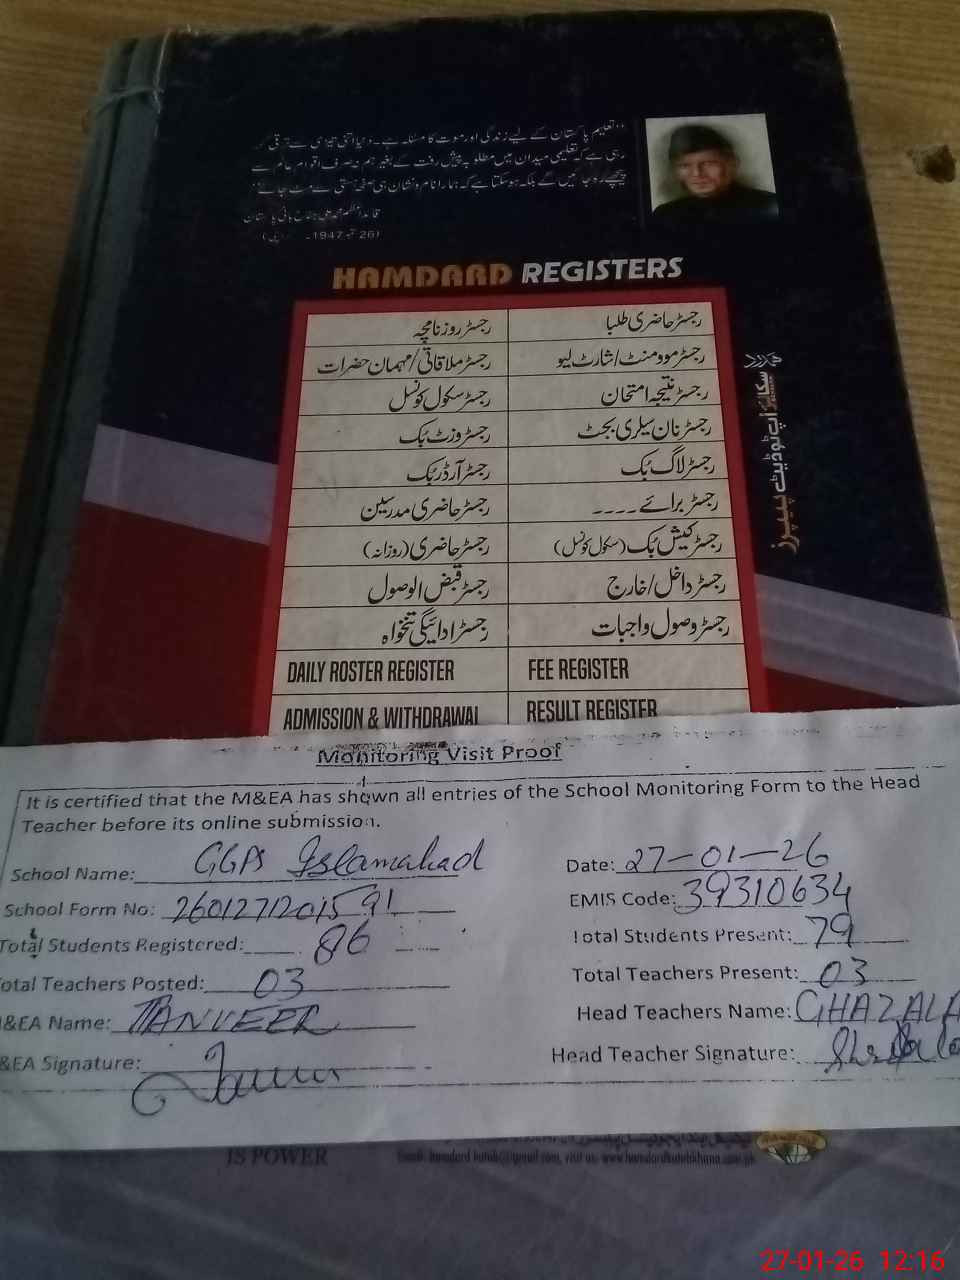 "تعلیم پاکستان کے لیے زندگی اور موت کا مسئلہ ہے۔ دنیا اتنی تیزی سے ترقی کر
رہی ہے کہ تعلیمی میدان میں مطلوبہ پیش رفت کے بغیر ہم نہ صرف اقوام عالم سے
پیچھے رہ جائیں گے بلکہ ہو سکتا ہے کہ ہمارا نام و نشان ہی صفحہ ہستی سے مٹ جائے"
قائداعظم محمد علی جناح بانی پاکستان
HAMDARD REGISTERS
رجسٹر حاضری طلبا
رجسٹر روزنامچہ
رجسٹر موومنٹ/شارٹ لیو
رجسٹر ملاقاتی/مہمان حضرات
رجسٹر نتیجہ امتحان
رجسٹر سکول کونسل
رجسٹر نان سیلری بجٹ
رجسٹر وزٹ بُک
رجسٹر لاگ بُک
رجسٹر آرڈر بُک
رجسٹر برائے ----
رجسٹر حاضری مدرسین
رجسٹر کیش بُک (سکول کونسل)
رجسٹر حاضری (روزانہ)
رجسٹر داخل/خارج
رجسٹر قبض الوصول
رجسٹر وصول واجبات
رجسٹر ادائیگی تنخواہ
DAILY ROSTER REGISTER
FEE REGISTER
ADMISSION & WITHDRAWAL
RESULT REGISTER
سکالرز اپ ٹو ڈیٹ پیپرز
Monitoring Visit Proof
It is certified that the M&EA has shown all entries of the School Monitoring Form to the Head
Teacher before its online submission.
School Name: GGPS Islamabad
Date: 27-01-26
School Form No: 260127120159
EMIS Code: 39310634
Total Students Registered: 86
Total Students Present: 79
Total Teachers Posted: 03
Total Teachers Present: 03
M&EA Name: TANVEER
Head Teachers Name: GHAZALA
&EA Signature:
Head Teacher Signature:
IS POWER
27-01-26 12:16